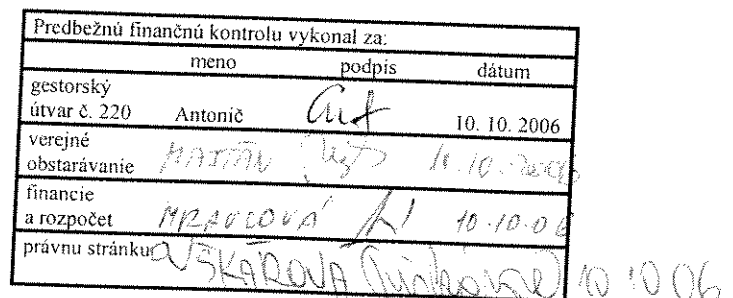 Predbežnú finančnú kontrolu vykonal za:
meno podpis dátum
gestorský
útvar č. 220 Antonič 10. 10. 2006
verejné
obstarávanie
financie
a rozpočet MRAVCOVÁ 10.10.06
právnu stránku ŠKÁROVÁ 10 10 06